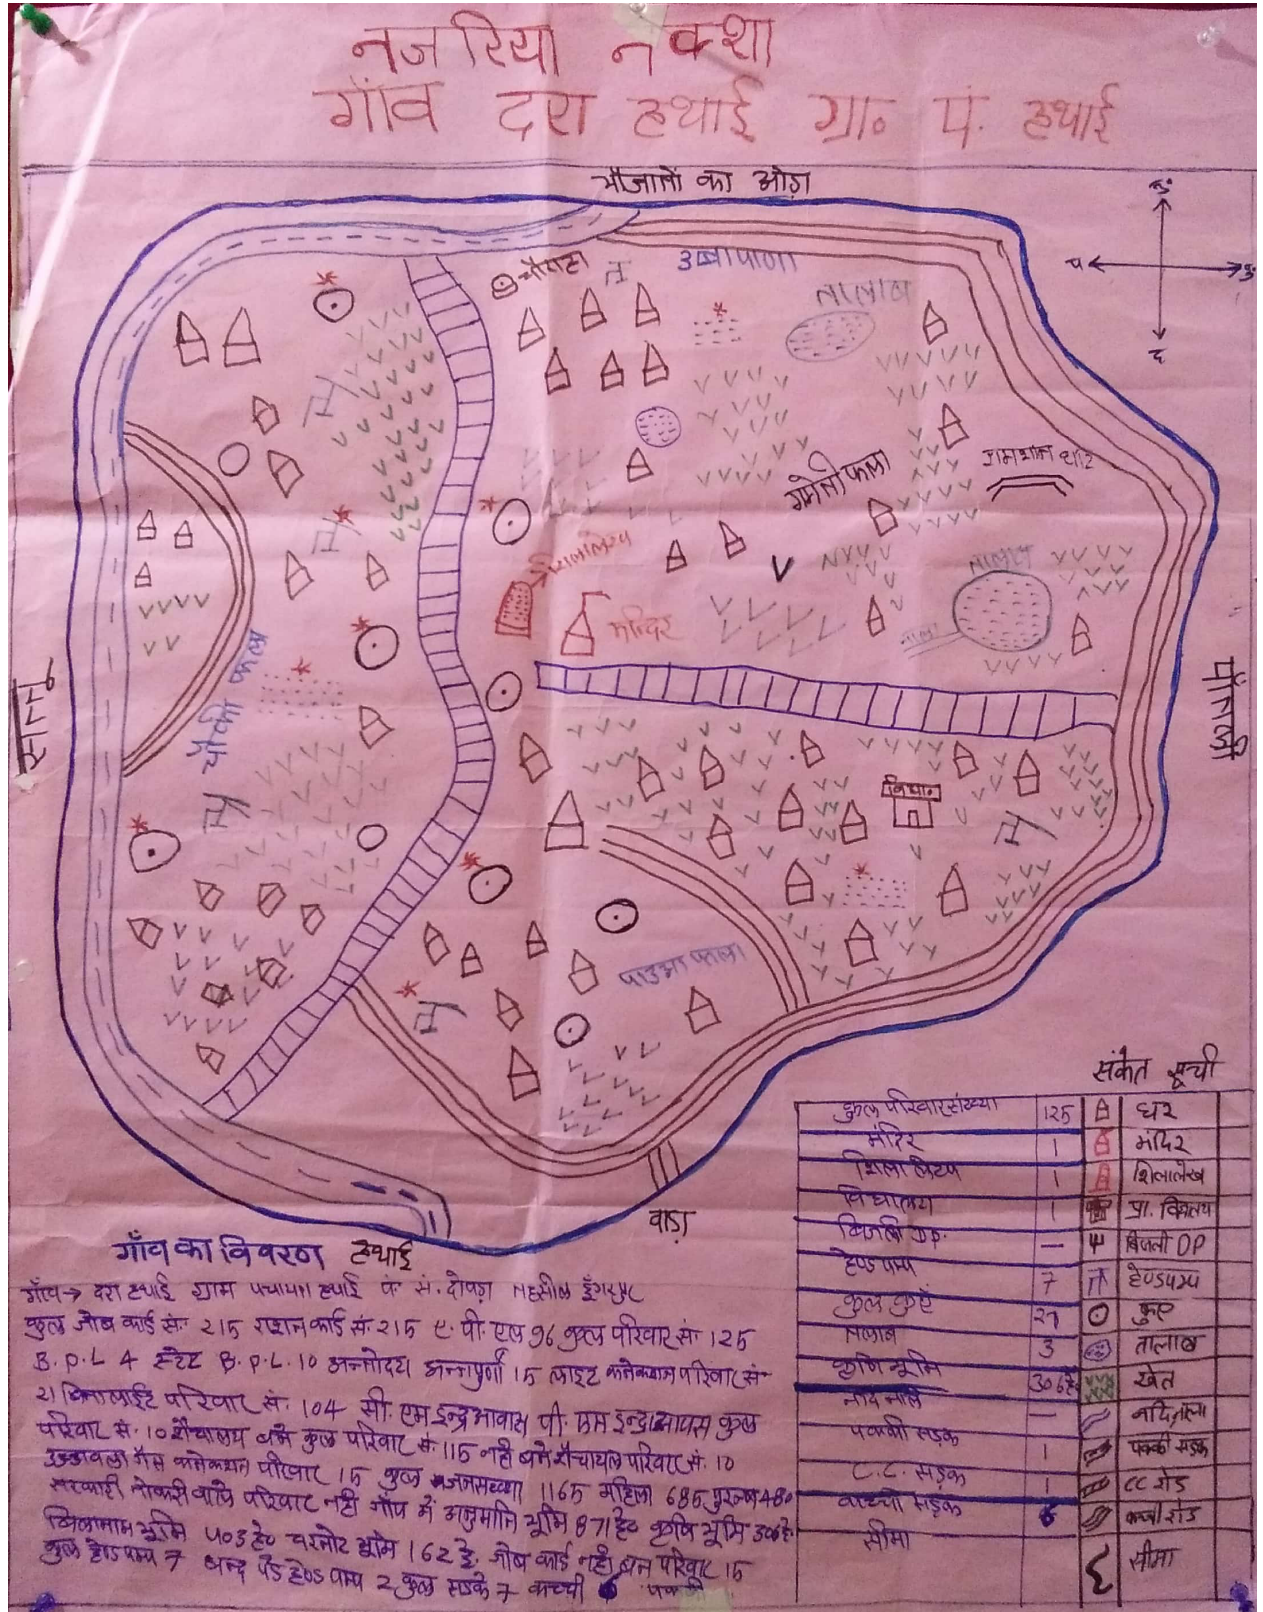 नजरिया नक्शा
गाँव दरा हथाई ग्रा० पं. हथाई
का ओड़ा
उ
द
चौराहा
तालाब
गमेती फला
शमशान घाट
तालाब
नाला
शिलालेख
मन्दिर
चौकी फला
फला
सानु
पाँतली
वाड़ा
संकेत सूची
कुल परिवार संख्या 125 घर
मंदिर 1 मंदिर
शिलालेख 1 शिलालेख
विद्यालय 1 प्रा. विद्यालय
बिजली D.P. — बिजली DP
हेण्ड पम्प 7 हेण्डपम्प
कुल कुएं 27 कुए
तलाब 3 तालाब
कृषि भूमि 306 हे खेत
नदि नाले — नदि नाला
पक्की सड़क 1 पक्की सड़क
C.C. सड़क 1 CC रोड
कच्ची सड़क 6 कच्ची रोड
सीमा सीमा
गाँव का विवरण हथाई
गाँव → दरा हथाई ग्राम पंचायत हथाई पं. सं. दोवड़ा तहसील डूंगरपुर
कुल जोब कार्ड सं. 215 राशन कार्ड सं. 215 ए. पी. एल 96 कुल परिवार सं. 125
B.P.L 4 स्टेट B.P.L. 10 अन्तोदय अन्नपुर्णा 15 लाइट कनेकशन परिवार सं-
21 बिना लाईट परिवार सं. 104 सी. एम इन्द्रा आवास पी. एम इन्द्रा आवास कुल
परिवार सं. 10 शौचालय बने कुल परिवार सं. 115 नही बने शौचायल परिवार सं. 10
उज्जवला गैस कनेकशन परिवार 15 कुल जनसंख्या 1165 महिला 685 पुरुष 480
सरकारी नोकरी वाले परिवार नही गाँव में अनुमानि भूमि 871 हे० कृषि भूमि 306 हे.
बिलानाम भूमि 403 हे० चरनोट भूमि 162 हे. जोब कार्ड नही बने परिवार 15
कुल हेण्ड पम्प 7 बन्द पडे हेण्ड पम्प 2 कुल सडके 7 कच्ची 6 पक्की